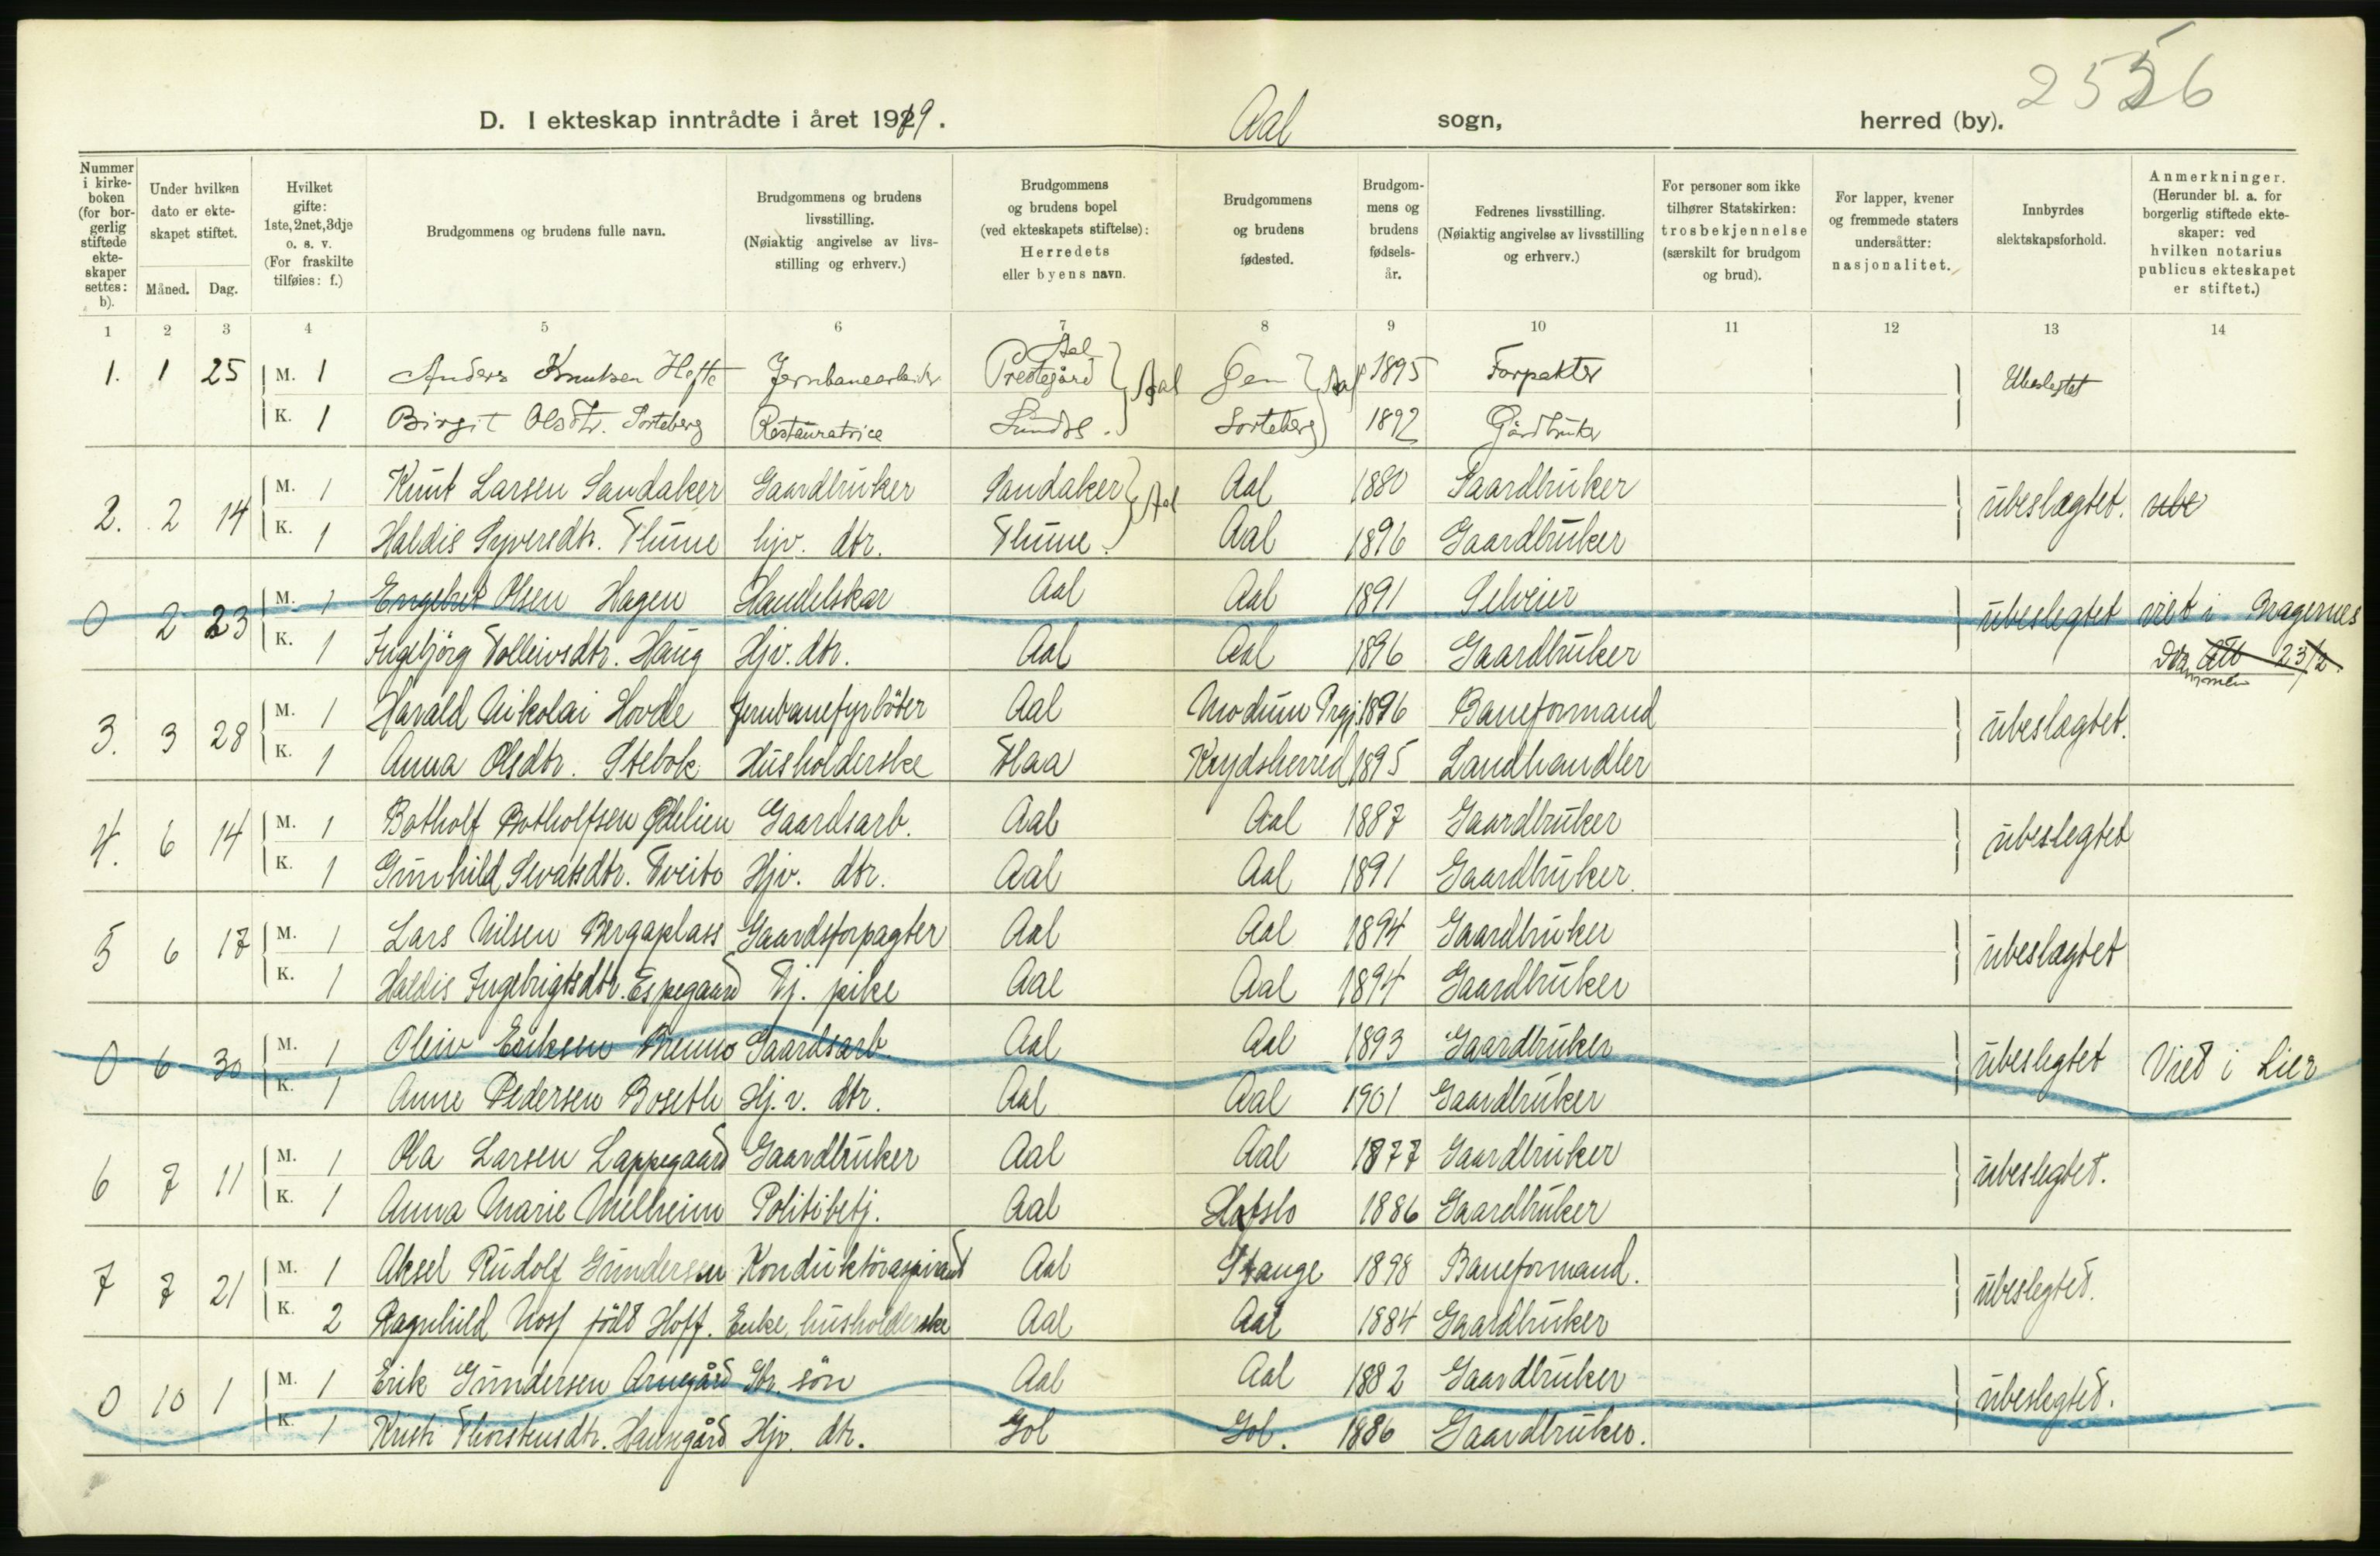 2556
D. I ekteskap inntrådte i året 1919. Aal sogn, herred (by).
Nummer i kirkeboken (for borgerlig stiftede ekteskaper settes: b).
Under hvilken dato er ekteskapet stiftet.
Måned. Dag.
Hvilket gifte: 1ste, 2net, 3dje o. s. v. (For fraskilte tilføies: f.)
Brudgommens og brudens fulle navn.
Brudgommens og brudens livsstilling. (Nøiaktig angivelse av livsstilling og erhverv.)
Brudgommens og brudens bopel (ved ekteskapets stiftelse): Herredets eller byens navn.
Brudgommens og brudens fødested.
Brudgommens og brudens fødselsår.
Fedrenes livsstilling. (Nøiaktig angivelse av livsstilling og erhverv.)
For personer som ikke tilhører Statskirken: trosbekjennelse (særskilt for brudgom og brud).
For lapper, kvener og fremmede staters undersåtter: nasjonalitet.
Innbyrdes slektskapsforhold.
Anmerkninger. (Herunder bl. a. for borgerlig stiftede ekteskaper: ved hvilken notarius publicus ekteskapet er stiftet.)
1 2 3 4 5 6 7 8 9 10 11 12 13 14
1. 1 25 M. 1 Anders Knutsen Hefte Jernbanearbeider Aal Prestegård Aal Gen Aal 1895 Forpakter Ubeslegtet
K. 1 Birgit Olsdtr. Sorteberg Restauratrice Sundre. Sorteberg 1892 Gårdbruker
2. 2 14 M. 1 Knut Larsen Sandaker Gaardbruker Sandaker Aal Aal 1880 Gaardbruker ubeslægtet. ube
K. 1 Haldis Syversdtr. Thume hjv. dtr. Thume. Aal 1896 Gaardbruker
0 2 23 M. 1 Engebret Olsen Hagen Handelskar Aal Aal 1891 Selveier ubeslegtet viet i Bragernes
K. 1 Ingebjörg Tolleivsdtr. Haug Hjv. dtr. Aal Aal 1896 Gaardbruker Drammen 23/2.
3. 3 28 M. 1 Harald Nikolai Hovde Jernbanefyrböter Aal Modum Prgj. 1896 Baneformand ubeslægtet.
K. 1 Anna Olsdtr. Stebok Husholderske Flaa Krydsherred 1895 Landhandler
4. 6 14 M. 1 Botholf Botholfsen Ødelien Gaardsarb. Aal Aal 1887 Gaardbruker ubeslegtet
K. 1 Gunhild Sevatsdtr. Tveito Hjv. dtr. Aal Aal 1891 Gaardbruker.
5 6 17 M. 1 Lars Nilsen Bergaplass Gaardsforpagter Aal Aal 1894 Gaardbruker ubeslægtet
K. 1 Haldis Ingebrigtsdtr. Espegaard Tj. pike Aal Aal 1894 Gaardbruker
0 6 30 M. 1 Oleiv Eriksen Brenno Gaardsarb. Aal Aal 1893 Gaardbruker ubeslegtet Viet i Lier
K. 1 Anne Pedersen Boseth Hj. v. dtr. Aal Aal 1901 Gaardbruker
6 7 11 M. 1 Ola Larsen Lappegaard Gaardbruker Aal Aal 1877 Gaardbruker ubeslegtet.
K. 1 Anna Marie Melheim Politibetj. Aal Hafslo 1886 Gaardbruker
7 7 21 M. 1 Aksel Rudolf Gundersen Konduktöraspirant Aal Stange 1898 Baneformand. ubeslegtet.
K. 2 Ragnhild Noss född Hoff. Enke, husholderske Aal Aal 1884 Gaardbruker
0 10 1 M. 1 Erik Gundersen Arnegård Gbr. sön Aal Aal 1882 Gaardbruker ubeslegtet.
K. 1 Kristi Thorstensdtr. Hansegård Hjv. dtr. Gol Gol. 1886 Gaardbruker.